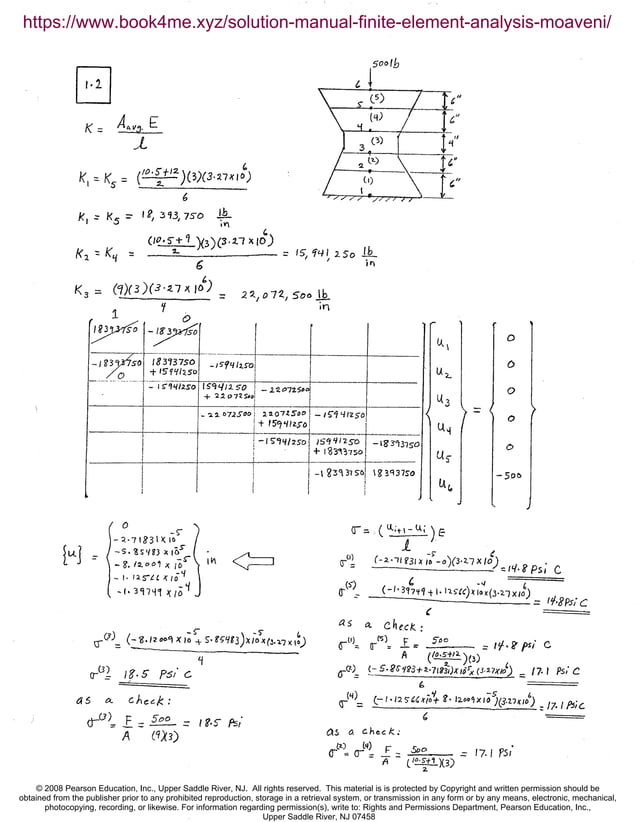 https://www.book4me.xyz/solution-manual-finite-element-analysis-moaveni/
1.2
500 lb
6 (5) 6"
5 (4) 6"
4 (3) 4"
3 (2) 6"
2 (1) 6"
1
K = A_avg. E / l
K₁ = K₅ = ((10.5+12)/2)(3)(3.27×10⁶) / 6
K₁ = K₅ = 18,393,750 lb/in
K₂ = K₄ = ((10.5+9)/2)(3)(3.27×10⁶) / 6 = 15,941,250 lb/in
K₃ = (9)(3)(3.27×10⁶) / 4 = 22,072,500 lb/in
1 0
18393750 -18393750 u₁ 0
-18393750 18393750 + 15941250 -15941250 u₂ 0
0
-15941250 15941250 + 22072500 -22072500 u₃ 0
-22072500 22072500 + 15941250 -15941250 u₄ = 0
-15941250 15941250 + 18393750 -18393750 u₅ 0
-18393750 18393750 u₆ -500
{u} = { 0
-2.71831×10⁻⁵
-5.85483×10⁻⁵
-8.12009×10⁻⁵
-1.12566×10⁻⁴
-1.39749×10⁻⁴ } in
σ⁽³⁾ = (-8.12009×10⁻⁵+5.85483)×10⁻⁵×(3.27×10⁶) / 4
σ⁽³⁾ = 18.5 Psi C
as a check:
σ⁽³⁾ = F/A = 500/(9)(3) = 18.5 Psi
σ = ((uᵢ₊₁-uᵢ)/l)E
σ⁽¹⁾ = (-2.71831×10⁻⁵-0)(3.27×10⁶) / 6 = 14.8 Psi C
σ⁽⁵⁾ = (-1.39749+1.12566)×10⁻⁴×(3.27×10⁶) / 6 = 14.8 Psi C
as a check:
σ⁽¹⁾ = σ⁽⁵⁾ = F/A = 500/((10.5+12)/2)(3) = 14.8 psi C
σ⁽²⁾ = (-5.85483+2.71831)×10⁻⁵×(3.27×10⁶) / 6 = 17.1 Psi C
σ⁽⁴⁾ = (-1.12566×10⁻⁴+8.12009×10⁻⁵)(3.27×10⁶) / 6 = 17.1 Psi C
as a check:
σ⁽²⁾ = σ⁽⁴⁾ = F/A = 500/((10.5+9)/2)(3) = 17.1 Psi
© 2008 Pearson Education, Inc., Upper Saddle River, NJ. All rights reserved. This material is is protected by Copyright and written permission should be
obtained from the publisher prior to any prohibited reproduction, storage in a retrieval system, or transmission in any form or by any means, electronic, mechanical,
photocopying, recording, or likewise. For information regarding permission(s), write to: Rights and Permissions Department, Pearson Education, Inc.,
Upper Saddle River, NJ 07458